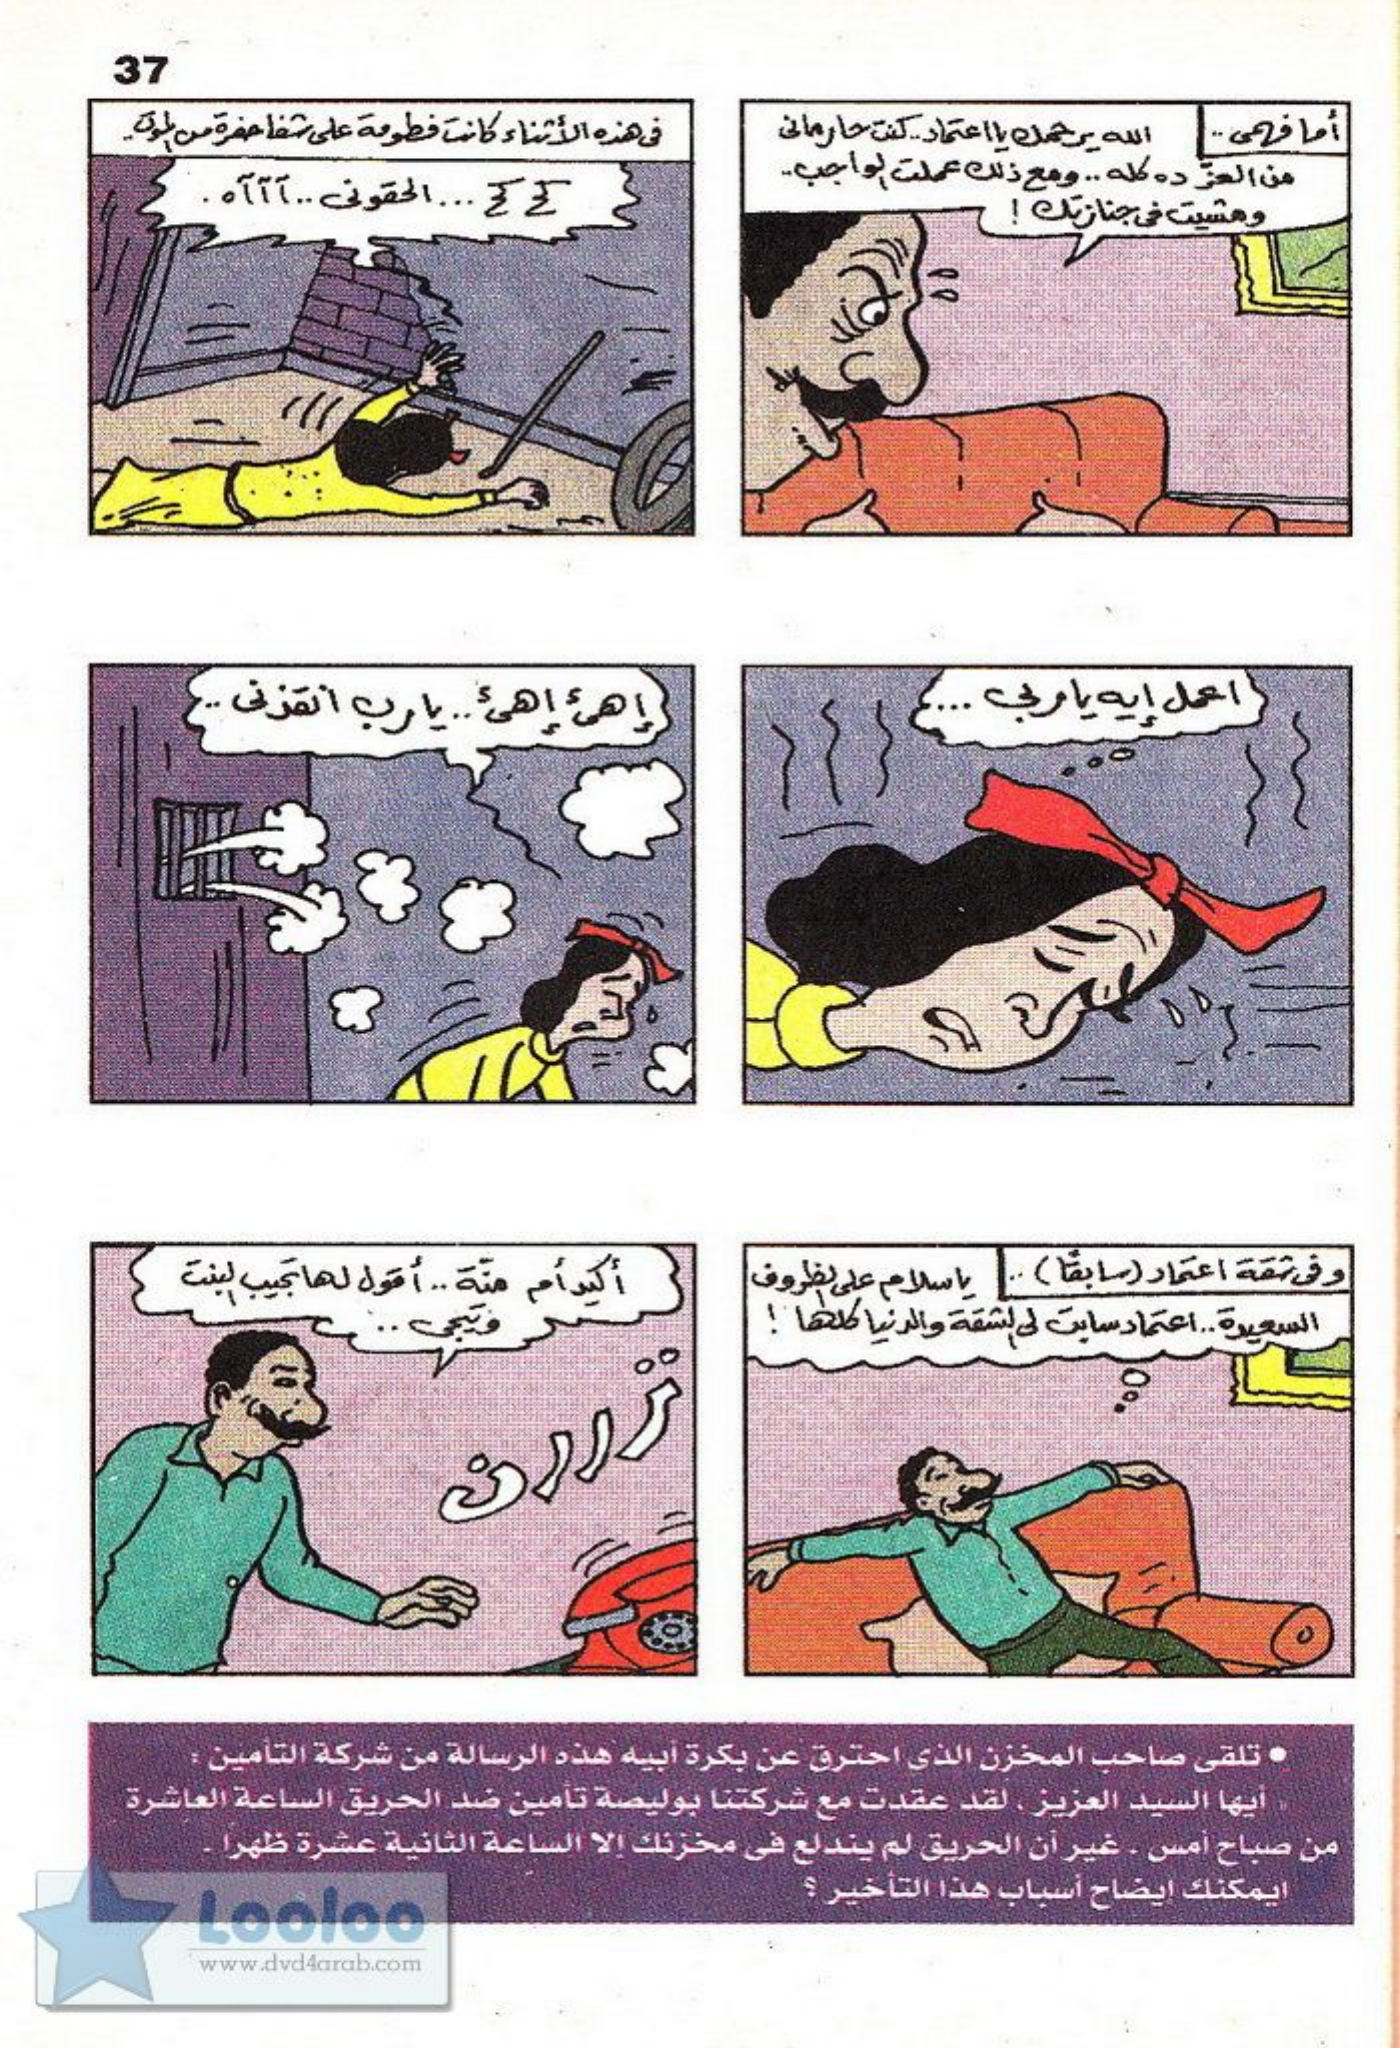 37
أما فهمى ..
الله يرحمك يا اعتماد .. كنت حارمانى
من العزّ ده كله .. ومع ذلك عملت الواجب ..
ومشيت فى جنازتك !
فى هذه الأثناء كانت فطومة على شفا حفرة من الموت ..
كح كح ... الحقونى .. آآآه .
اعمل إيه يا ربى ....
إهئ إهئ .. يارب انقذنى ..
وفى شقة اعتماد (سابقًا) ..
ياسلام على الظروف
السعيدة .. اعتماد سابت لى الشقة والدنيا كلها !
أكيد أم منّة .. أقول لها تجيب البنت
وتيجى ..
ترررن
• تلقى صاحب المخزن الذى احترق عن بكرة أبيه هذه الرسالة من شركة التأمين :
« أيها السيد العزيز . لقد عقدت مع شركتنا بوليصة تأمين ضد الحريق الساعة العاشرة
من صباح أمس . غير أن الحريق لم يندلع فى مخزنك إلا الساعة الثانية عشرة ظهرا .
ايمكنك ايضاح أسباب هذا التأخير ؟
Looloo
www.dvd4arab.com